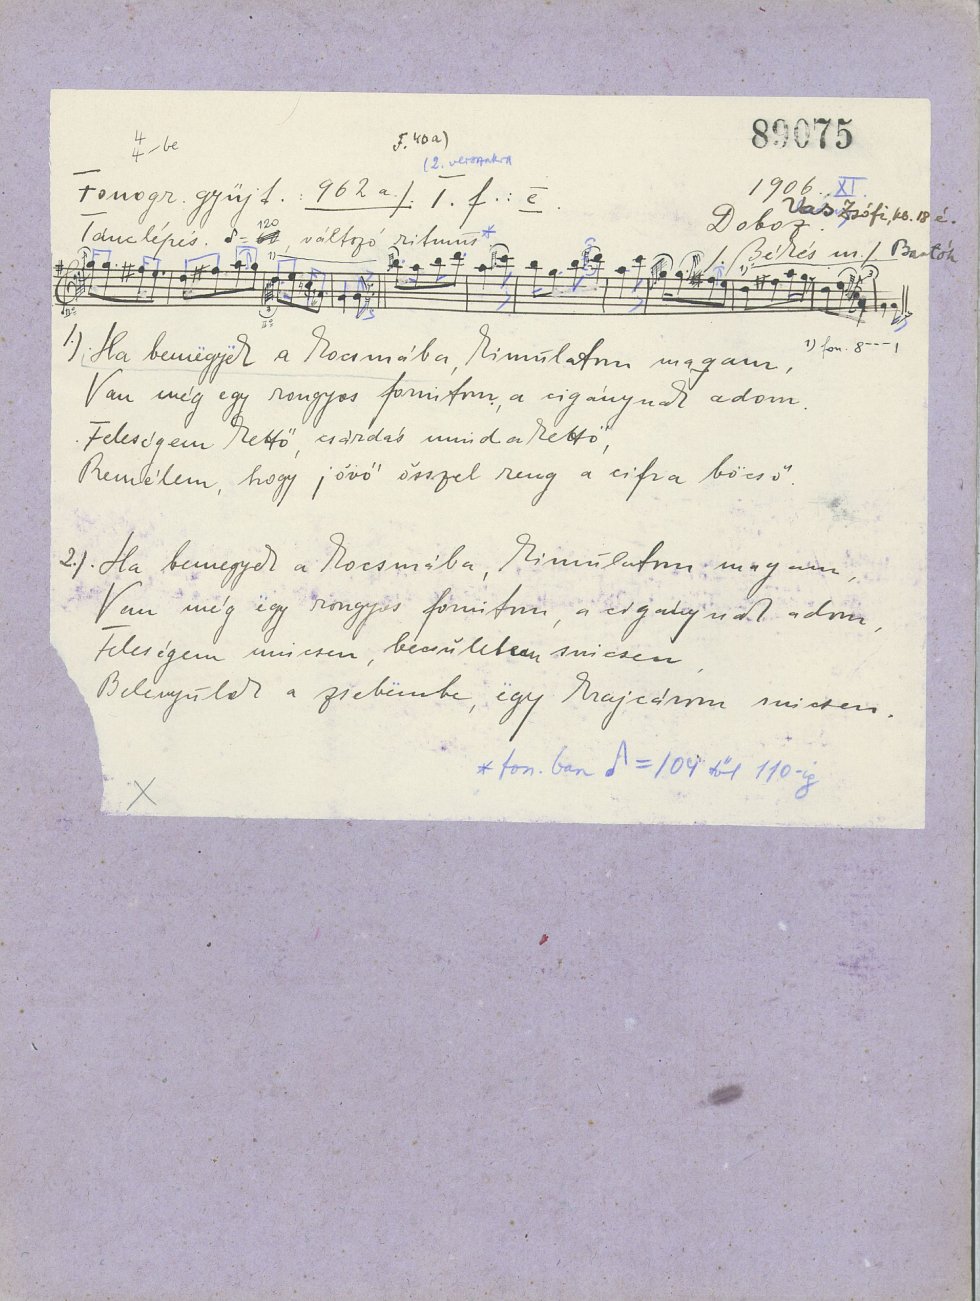 4/4-be
F. 40a)
89075
(2. versszakra
Fonogr. gyüjt.: 962 a./. T. f.: ē.
1906. XI.
Vas Zsófi, kb. 18 é.
Doboz
Tánclépés. 120, változó ritmus*
/Békés m./ Bartók
1) fon. 8---1
1.) Ha bemëgyëk a kocsmába, kimulatom magam,
Van még egy rongyos forintom, a cigánynak adom.
Feleségem kettő, csárdás mind a kettő,
Remélem, hogy jövő összel reng a cifra bőcső.
2.). Ha bemegyek a kocsmába, kimulatom magam,
Van még ëgy rongyos forintom, a cigánynak adom,
Feleségem nincsen, becsületem sincsen,
Belenyúlok a zsebëmbe, ëgy krajcárom sincsen.
* fon. ban = 104 től 110-ig
X